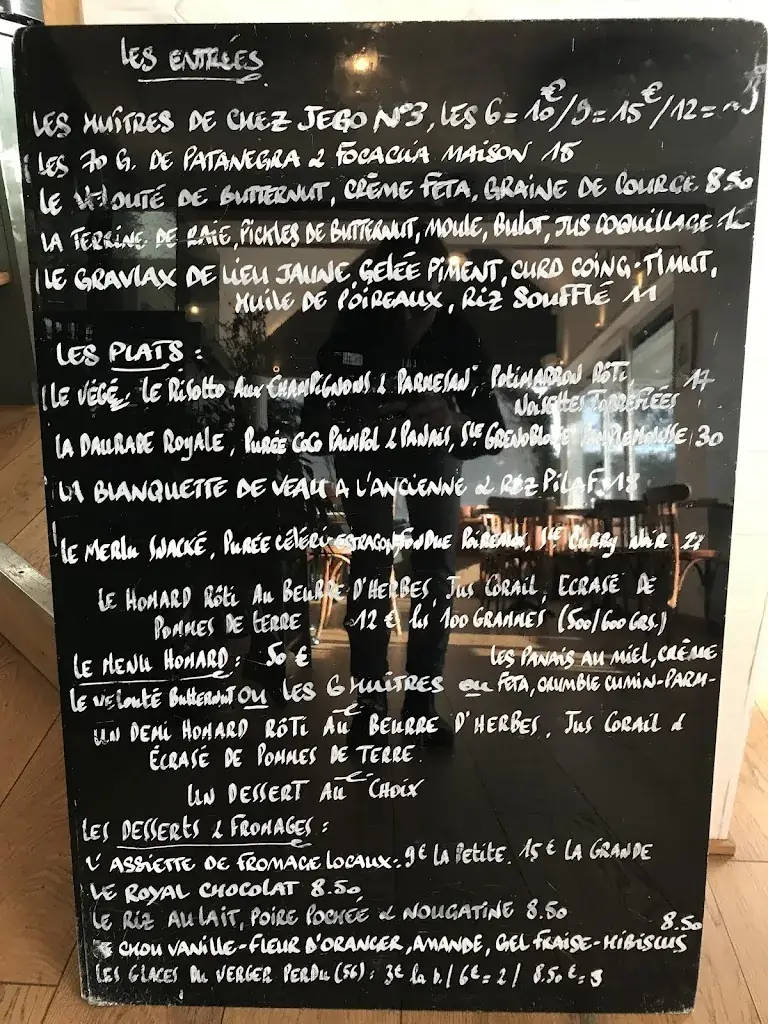 LES ENTRÉES
LES HUÎTRES DE CHEZ JEGO N°3, LES 6 = 10€/9 = 15€/12 =
LES 70 G. DE PATANEGRA & FOCACCIA MAISON 15
LE VELOUTÉ DE BUTTERNUT, CRÈME FETA, GRAINE DE COURGE 8.50
LA TERRINE DE RAIE, PICKLES DE BUTTERNUT, MOULE, BULOT, JUS COQUILLAGE
LE GRAVLAX DE LIEU JAUNE, GELÉE PIMENT, CURD COING-TIMUT,
HUILE DE POIREAUX, RIZ SOUFFLÉ 11
LES PLATS :
LE VÉGÉ: LE RISOTTO AUX CHAMPIGNONS & PARMESAN, POTIMARRON RÔTI 17
NOISETTES TORRÉFIÉES
LA DAURADE ROYALE, PURÉE COCO PAIMPOL & PANAIS, SCE GRENOBLOISE PAMPLEMOUSSE 30
LA BLANQUETTE DE VEAU A L'ANCIENNE & RIZ PILAF 18
LE MERLU SNACKÉ, PURÉE CÉLERI ESTRAGON, FONDUE POIREAUX, SCE CURRY NOIR
LE HOMARD RÔTI AU BEURRE D'HERBES, JUS CORAIL, ECRASÉ DE
POMMES DE TERRE 12 € les 100 GRAMMES (500/600 GRS.)
LE MENU HOMARD : 50 € LES PANAIS AU MIEL, CRÈME
LE VELOUTÉ BUTTERNUT OU LES 6 HUÎTRES OU FETA, CRUMBLE CUMIN-PARM-
UN DEMI HOMARD RÔTI AU BEURRE D'HERBES, JUS CORAIL &
ÉCRASÉ DE POMMES DE TERRE.
UN DESSERT AU CHOIX
LES DESSERTS & FROMAGES :
L'ASSIETTE DE FROMAGE LOCAUX. 9€ LA PETITE. 15€ LA GRANDE
LE ROYAL CHOCOLAT 8.50
LE RIZ AU LAIT, POIRE POCHÉE & NOUGATINE 8.50
8.50
LE CHOU VANILLE-FLEUR D'ORANGER, AMANDE, GEL FRAISE-HIBISCUS
LES GLACES DU VERGER PERDU (56) : 3€ la b. / 6€ = 2 / 8.50€ = 3